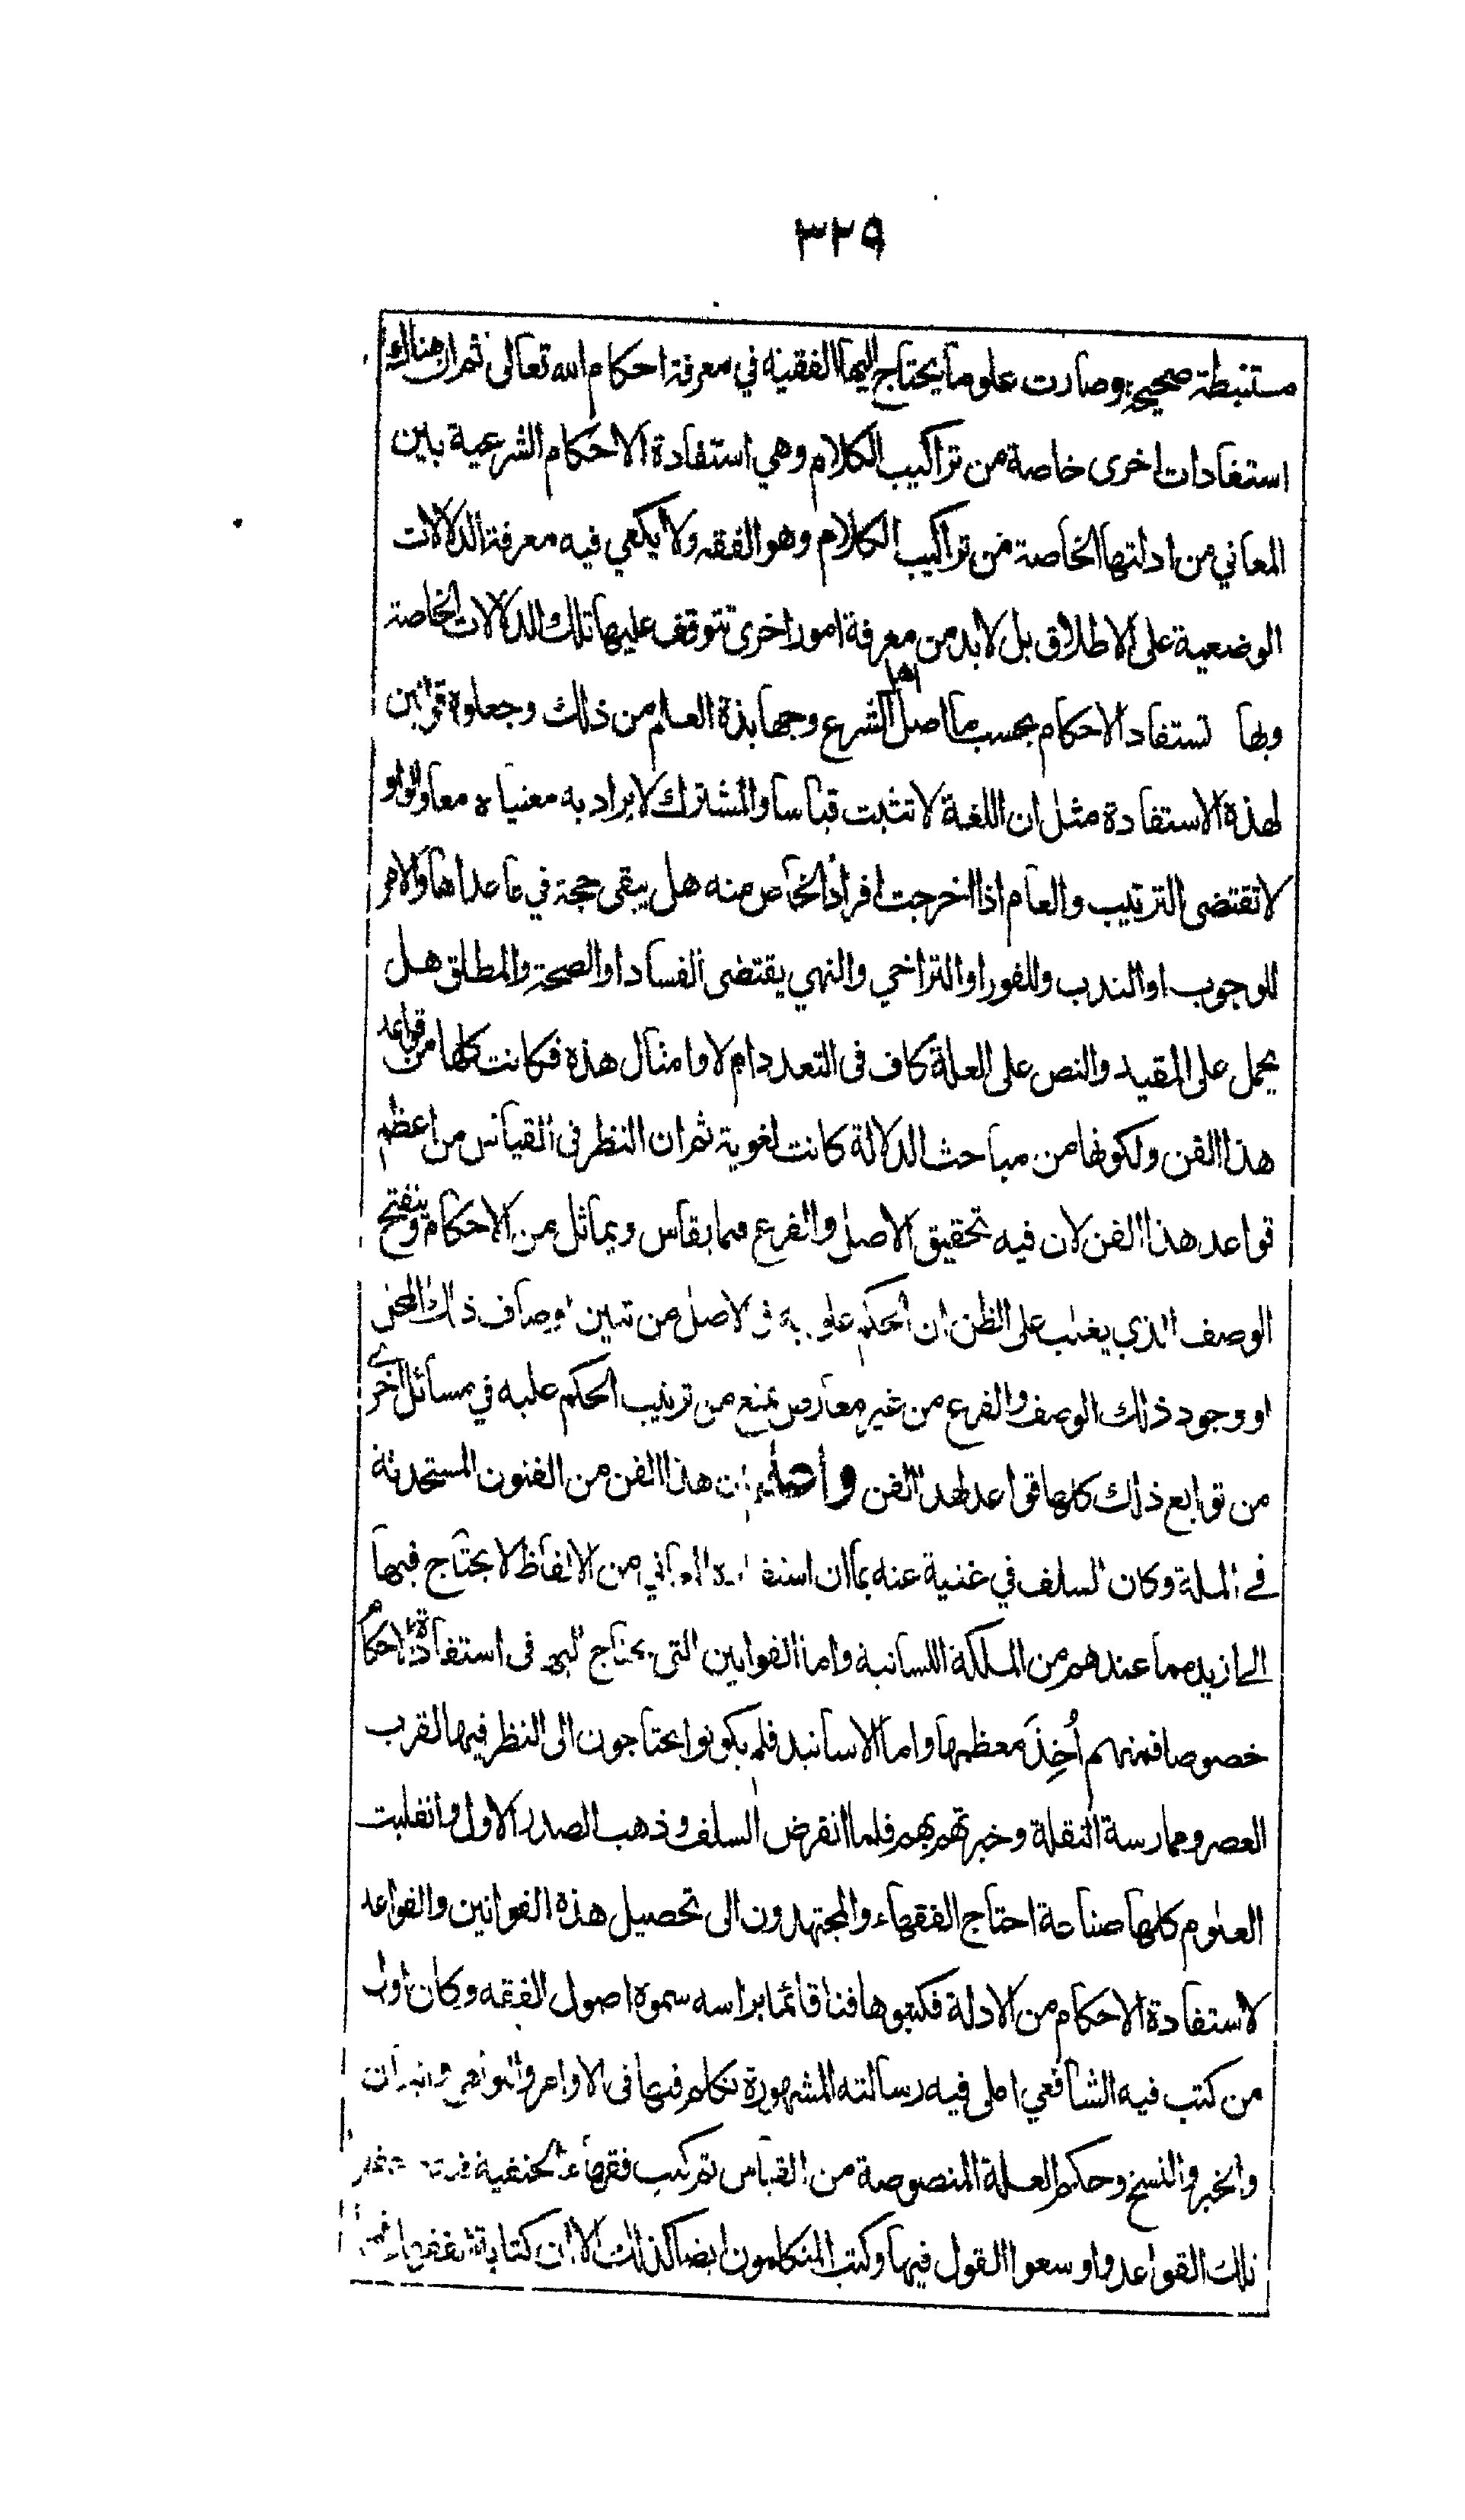 ٣٢٩
مستنبطة صحيحة وصارت علوما يحتاج اليها الفقيه في معرفة احكام الله تعالى ثم ان هناك
استفادات اخرى خاصة من تراكيب الكلام وهي استفادة الاحكام الشرعية بين
المعاني من ادلتها الخاصة من تراكيب الكلام وهو الفقه ولا يكفي فيه معرفة الدلالات
الوضعية على الاطلاق بل لابد من معرفة امور اخرى تتوقف عليها تلك الدلالات الخاصة
وبها تستفاد الاحكام بحسب ما اصل اهل الشرع وجهابذة العلم من ذلك وجعلوه قوانين
لهذه الاستفادة مثل ان اللغة لا تثبت قياسا والمشترك لا يراد به معنياه معا والواو
لا تقتضى الترتيب والعام اذا اخرجت افراد الخاص منه هل يبقى حجة في ما عداها والامر
للوجوب او الندب وللفور او التراخي والنهي يقتضى الفساد او الصحة والمطلق هل
يحمل على المقيد والنص على العلة كاف فى التعدد ام لا وامثال هذه فكانت كلها من قواعد
هذا الفن ولكونها من مباحث الدلالة كانت لغوية ثم ان النظر فى القياس من اعظم
قواعد هذا الفن لان فيه تحقيق الاصل والفرع فيما يقاس ويماثل من الاحكام وينفتح
الوصف الذي يغلب على الظن ان الحكم علق به فى الاصل من تبين اوصاف ذلك المحل
او وجود ذلك الوصف والفرع من غير معارض يمنع من ترتيب الحكم عليه في مسائل اخرے
من توابع ذلك كلها قواعد لهذا الفن واعلم ان هذا الفن من الفنون المستحدثة
فے الملة وكان السلف في غنية عنه بما ان استفادة المعاني من الالفاظ لا يحتاج فيها
الى ازيد مما عندهم من الملكة اللسانية واما القوانين التى يحتاج اليها فى استفادة الاحكام
خصوصا فمنهم أُخِذَ معظمها واما الاسانيد فلم يكونوا يحتاجون الى النظر فيها لقرب
العصر وممارسة النقلة وخبرتهم بهم فلما انقرض السلف وذهب الصدر الاول وانقلبت
العلوم كلها صناعة احتاج الفقهاء والمجتهدون الى تحصيل هذه القوانين والقواعد
لاستفادة الاحكام من الادلة فكتبوها فنا قائما براسه سموه اصول الفقه وكان اول
من كتب فيه الشافعي املى فيه رسالته المشهورة تكلم فيها فى الاوامر والنواهي والبيان
والخبر والنسخ وحكم العلة المنصوصة من القياس ثم كتب فقهاء الحنفية فيه
تلك القواعد واوسعوا القول فيها وكتب المتكلمون ايضا كذلك الا ان كتابة الفقهاء